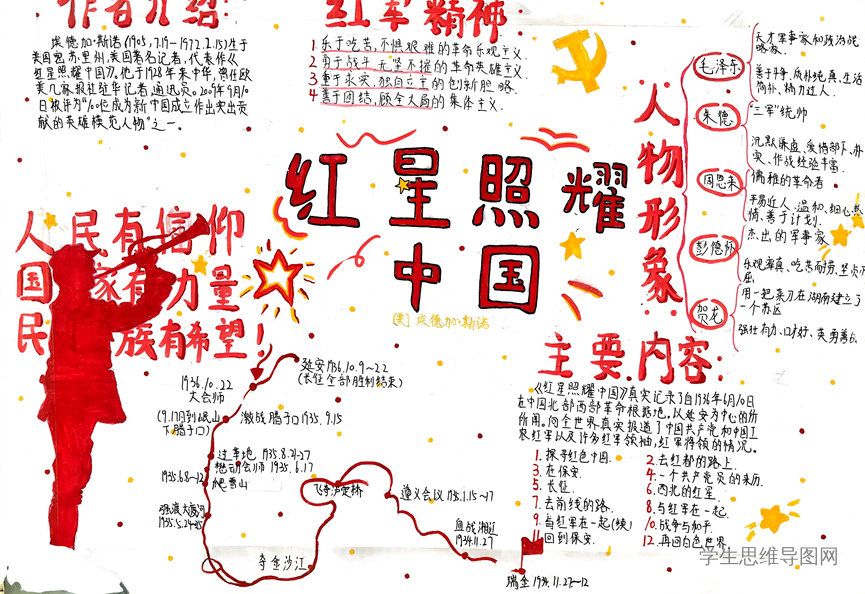 作者介绍:
埃德加·斯诺(1905.7.19-1972.2.15)生于
美国密苏里州,美国著名记者,代表作《
红星照耀中国》,他于1928年来中华,曾任欧
美几家报社驻华记者 通讯员。2009年9月10
日被评为“10位成为新中国成立作出突出贡
献的英雄模范人物”之一。
红军精神
1 乐于吃苦,不惧艰难的革命乐观主义.
2 勇于战斗 无坚不摧的革命英雄主义.
3 重于求实,独自立主的创新胆略.
4 善于团结,顾全大局的集体主义.
红星照耀
中国
[美] 埃德加·斯诺
人民有信仰
国家有力量
民族有希望!
人物形象
毛泽东
天才军事家和政治战
略家.
善于斗争、质朴纯真、生活
简朴、精力过人.
朱德
“三军”统帅
沉默谦虚、爱惜部下、朴
实、作战经验丰富.
周恩来
儒雅的革命者
平易近人、温和、细心热
情、善于计划.
彭德怀
杰出的军事家
乐观率真、吃苦耐劳、坚贞不
屈
贺龙
用一把菜刀在湖南建立了
一个苏区
强壮有力、口才好、英勇善战.
延安1936.10.9~22
(长征全部胜利结束)
1936.10.22
大会师
(9.17日到岷山
下腊子口)
激战腊子口1935.9.15
过草地 1935.8.21-27
懋功会师 1935.6.17
1935.6.8~12
爬雪山
强渡大渡河
1935.5.24-25
飞夺泸定桥
夺金沙江
遵义会议 1935.1.15~17
血战湘江
1934.11.27
瑞金 1934.11.27~12
主要内容:
《红星照耀中国》真实记录了自1936年6月10日
在中国北部西部革命根据地,以延安为中心的所
所闻。向全世界真实报道了中国共产党和中国工
农红军以及许多红军领袖,红军将领的情况。
1. 探寻红色中国.
2. 去红都的路上.
3. 在保安.
4. 一个共产党员的来历.
5. 长征
6. 西北的红星.
7. 去前线的路.
8. 与红军在一起.
9. 与红军在一起(续)
10. 战争与和平.
11. 回到保安.
12. 再回白色世界.
学生思维导图网